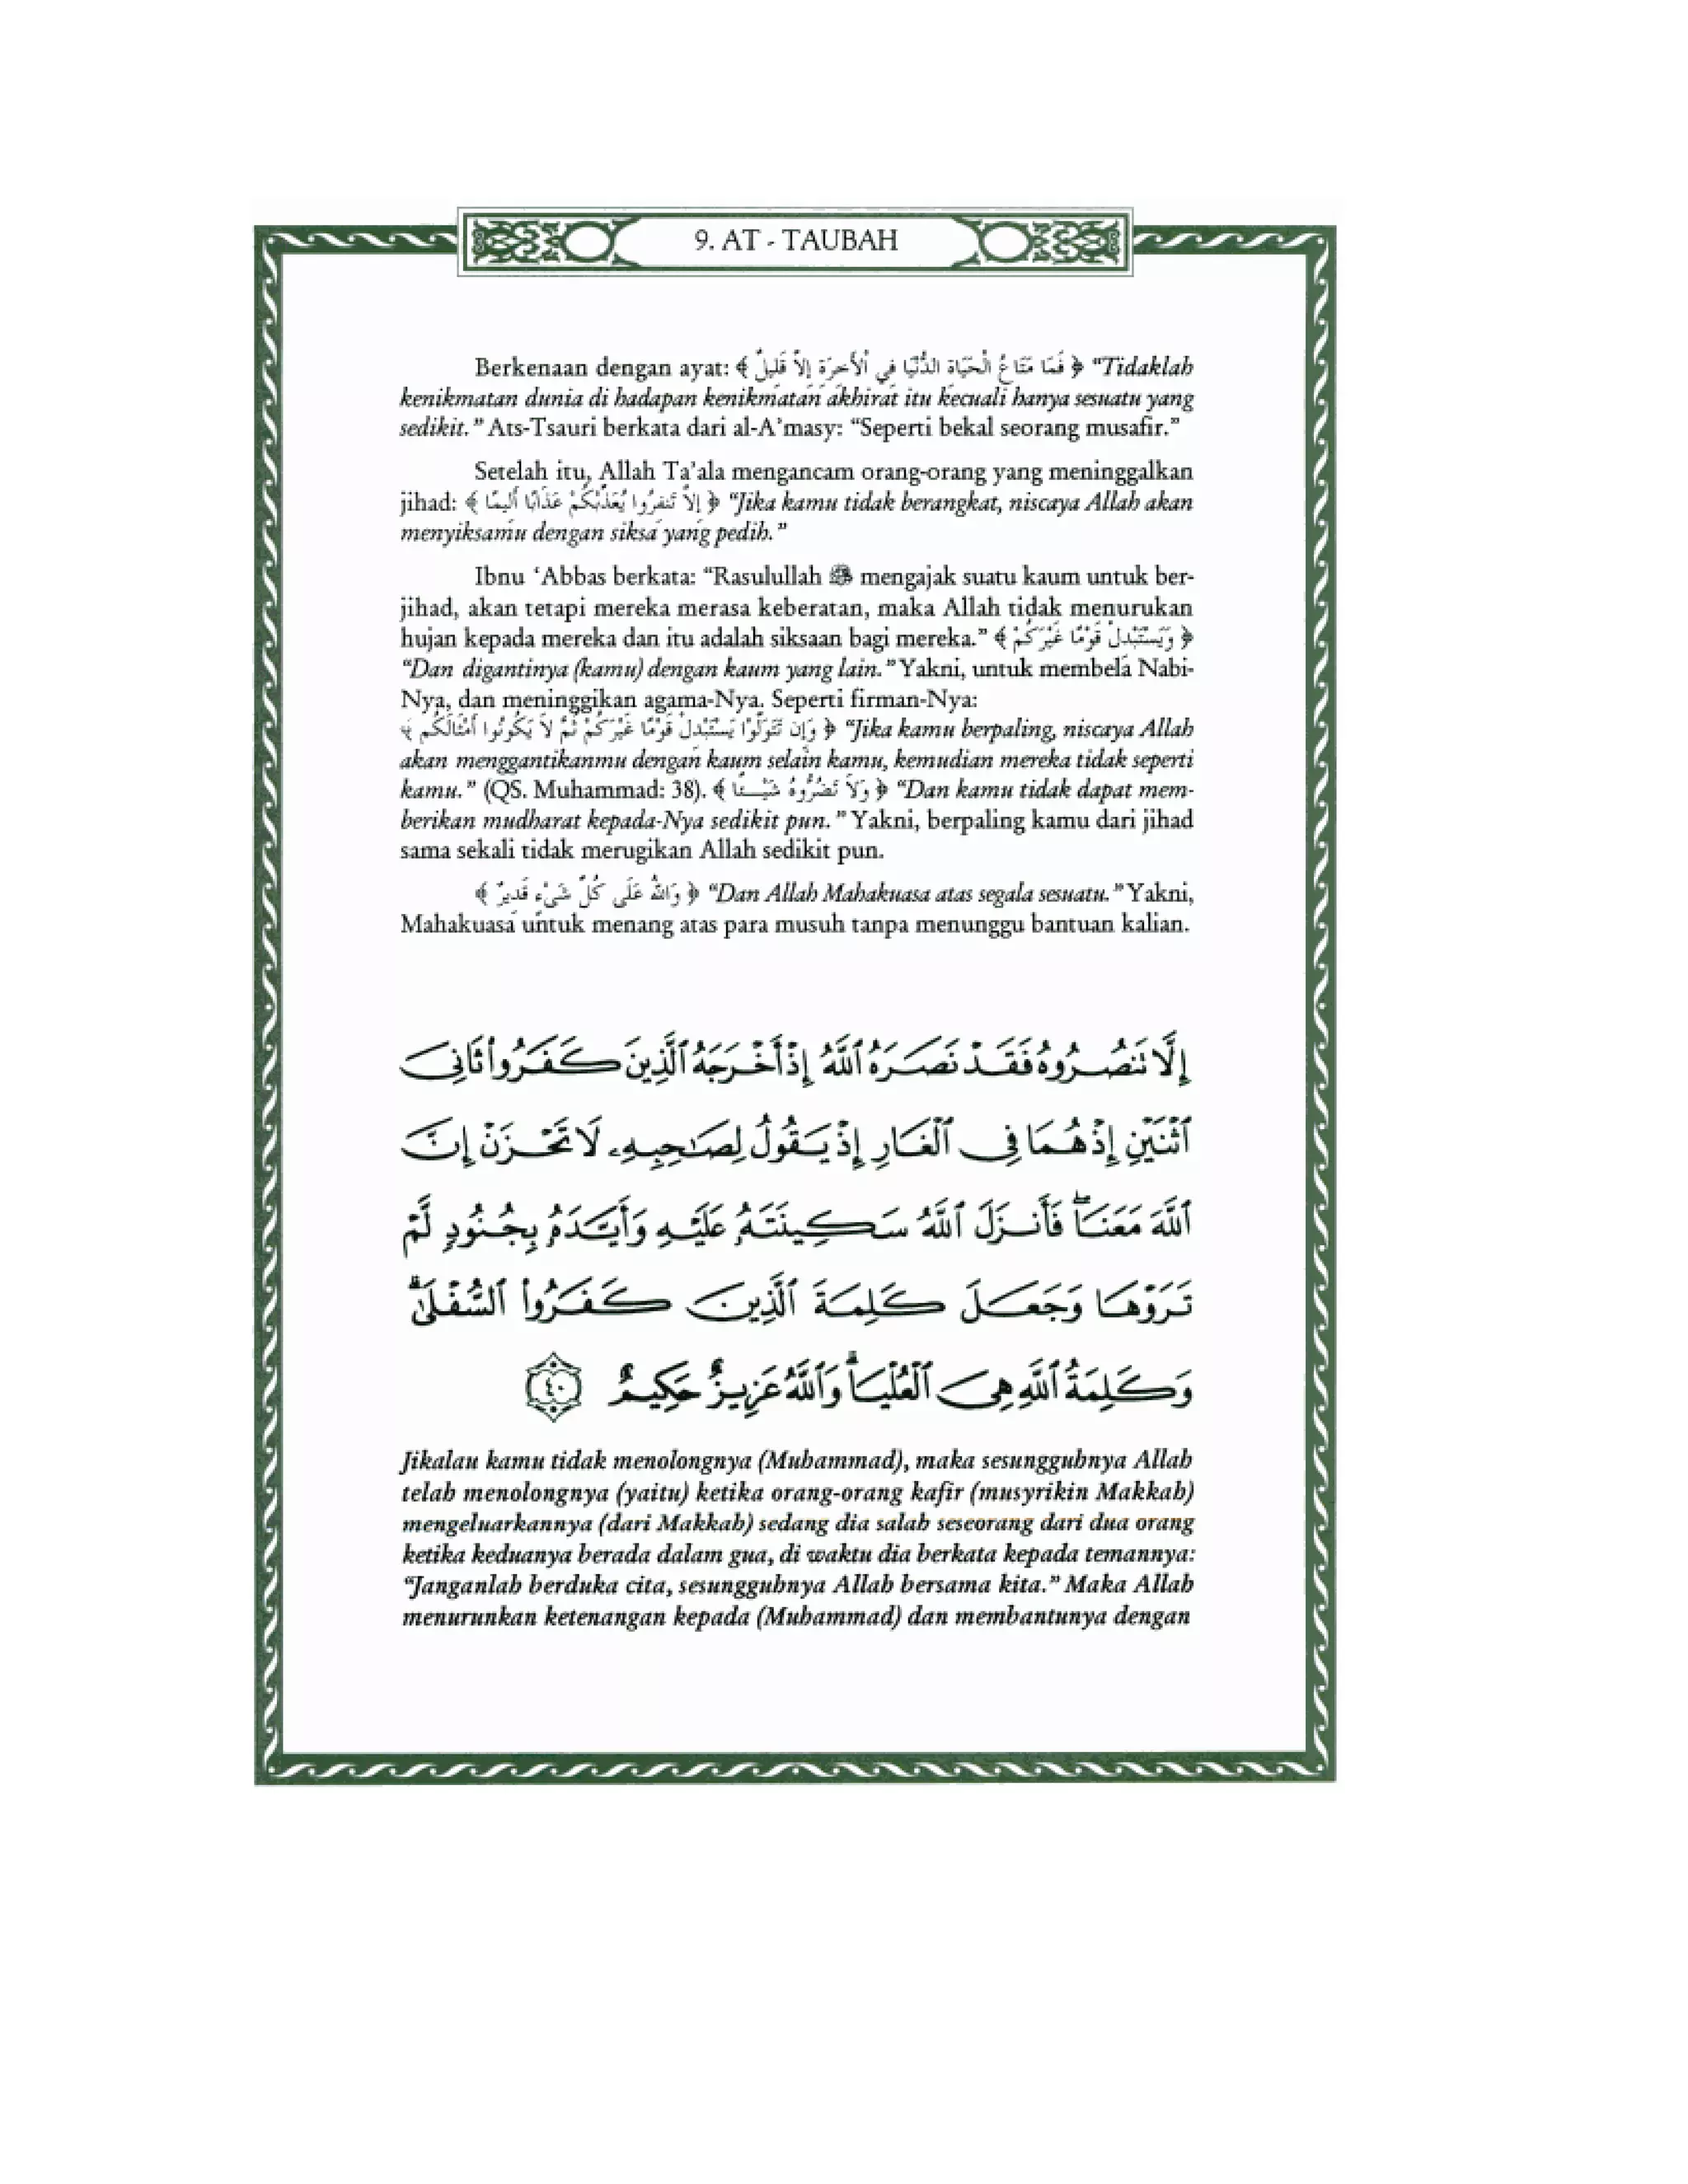 9. AT - TAUBAH
Berkenaan dengan ayat: ﴿ فَمَا مَتَاعُ الْحَيَاةِ الدُّنْيَا فِي اْلأَخِرَةِ إِلاَّ قَلِيلٌ ﴾ “Tidaklah
kenikmatan dunia di hadapan kenikmatan akhirat itu kecuali hanya sesuatu yang
sedikit.” Ats-Tsauri berkata dari al-A’masy: “Seperti bekal seorang musafir.”
Setelah itu, Allah Ta’ala mengancam orang-orang yang meninggalkan
jihad: ﴿ إِلاَّ تَنفِرُوا يُعَذِّبْكُمْ عَذَابًا أَلِيمًا ﴾ “Jika kamu tidak berangkat, niscaya Allah akan
menyiksamu dengan siksa yang pedih.”
Ibnu ‘Abbas berkata: “Rasulullah ﷺ mengajak suatu kaum untuk ber-
jihad, akan tetapi mereka merasa keberatan, maka Allah tidak menurukan
hujan kepada mereka dan itu adalah siksaan bagi mereka.” ﴿ وَيَسْتَبْدِلْ قَوْمًا غَيْرَكُمْ ﴾
“Dan digantinya (kamu) dengan kaum yang lain.” Yakni, untuk membela Nabi-
Nya, dan meninggikan agama-Nya. Seperti firman-Nya:
﴿ وَإِن تَتَوَلَّوْا يَسْتَبْدِلْ قَوْمًا غَيْرَكُمْ ثُمَّ لاَ يَكُونُوا أَمْثَالَكُم ﴾ “Jika kamu berpaling, niscaya Allah
akan menggantikanmu dengan kaum selain kamu, kemudian mereka tidak seperti
kamu.” (QS. Muhammad: 38). ﴿ وَلاَ تَضُرُّوهُ شَيْـــئًا ﴾ “Dan kamu tidak dapat mem-
berikan mudharat kepada-Nya sedikit pun.” Yakni, berpaling kamu dari jihad
sama sekali tidak merugikan Allah sedikit pun.
﴿ وَاللهُ عَلَى كُلِّ شَيْءٍ قَدِيرٌ ﴾ “Dan Allah Mahakuasa atas segala sesuatu.” Yakni,
Mahakuasa untuk menang atas para musuh tanpa menunggu bantuan kalian.
إِلَّا تَنصُرُوهُ فَقَدْ نَصَرَهُ ٱللَّهُ إِذْ أَخْرَجَهُ ٱلَّذِينَ كَفَرُواْ ثَانِىَ
ٱثْنَيْنِ إِذْ هُمَا فِى ٱلْغَارِ إِذْ يَقُولُ لِصَٰحِبِهِۦ لَا تَحْزَنْ إِنَّ
ٱللَّهَ مَعَنَاۖ فَأَنزَلَ ٱللَّهُ سَكِينَتَهُۥ عَلَيْهِ وَأَيَّدَهُۥ بِجُنُودٍ لَّمْ
تَرَوْهَا وَجَعَلَ كَلِمَةَ ٱلَّذِينَ كَفَرُواْ ٱلسُّفْلَىٰۗ
وَكَلِمَةُ ٱللَّهِ هِىَ ٱلْعُلْيَاۗ وَٱللَّهُ عَزِيزٌ حَكِيمٌ ٤٠
Jikalau kamu tidak menolongnya (Muhammad), maka sesungguhnya Allah
telah menolongnya (yaitu) ketika orang-orang kafir (musyrikin Makkah)
mengeluarkannya (dari Makkah) sedang dia salah seseorang dari dua orang
ketika keduanya berada dalam gua, di waktu dia berkata kepada temannya:
“Janganlah berduka cita, sesungguhnya Allah bersama kita.” Maka Allah
menurunkan ketenangan kepada (Muhammad) dan membantunya dengan